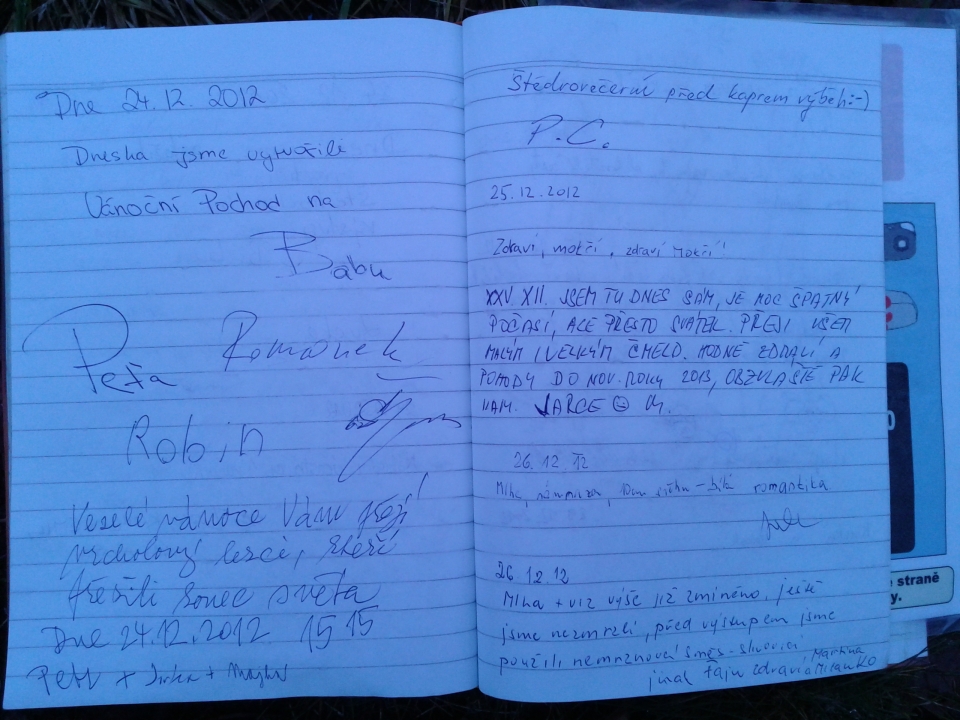 Dne 24.12.2012
Dneska jsme vytvořili
Vánoční Pochod na
Babu
Peťa
Romanek
Robin
Veselé vánoce Vám přejí
vrcholoví lezci, kteří
přežili konec světa
Dne 24.12.2012 15 15
Petr + Jirka +
Štědrovečerní před kaprem výběh :-)
P.C.
25.12.2012
Zdraví, mokří, zdraví mokří!
XXV. XII. JSEM TU DNES SÁM, JE MOC ŠPATNÝ
POČASÍ, ALE PŘESTO SVÁTEK. PŘEJI VŠEM
MALÝM I VELKÝM HODNĚ ZDRAVÍ A
POHODY DO NOV. ROKU 2013, OBZVLÁŠTĚ PAK
JARCE ☺ M.
26.12.12
Mlha, 10cm sněhu - bílá romantika
26 12 12
Mlha + viz výše již zmíněno, ještě
jsme nezmrzli, před výstupem jsme
použili nemrznoucí směs - slivovici
jinak fajn zdraví Martina
a Milan KO
e straně
y.